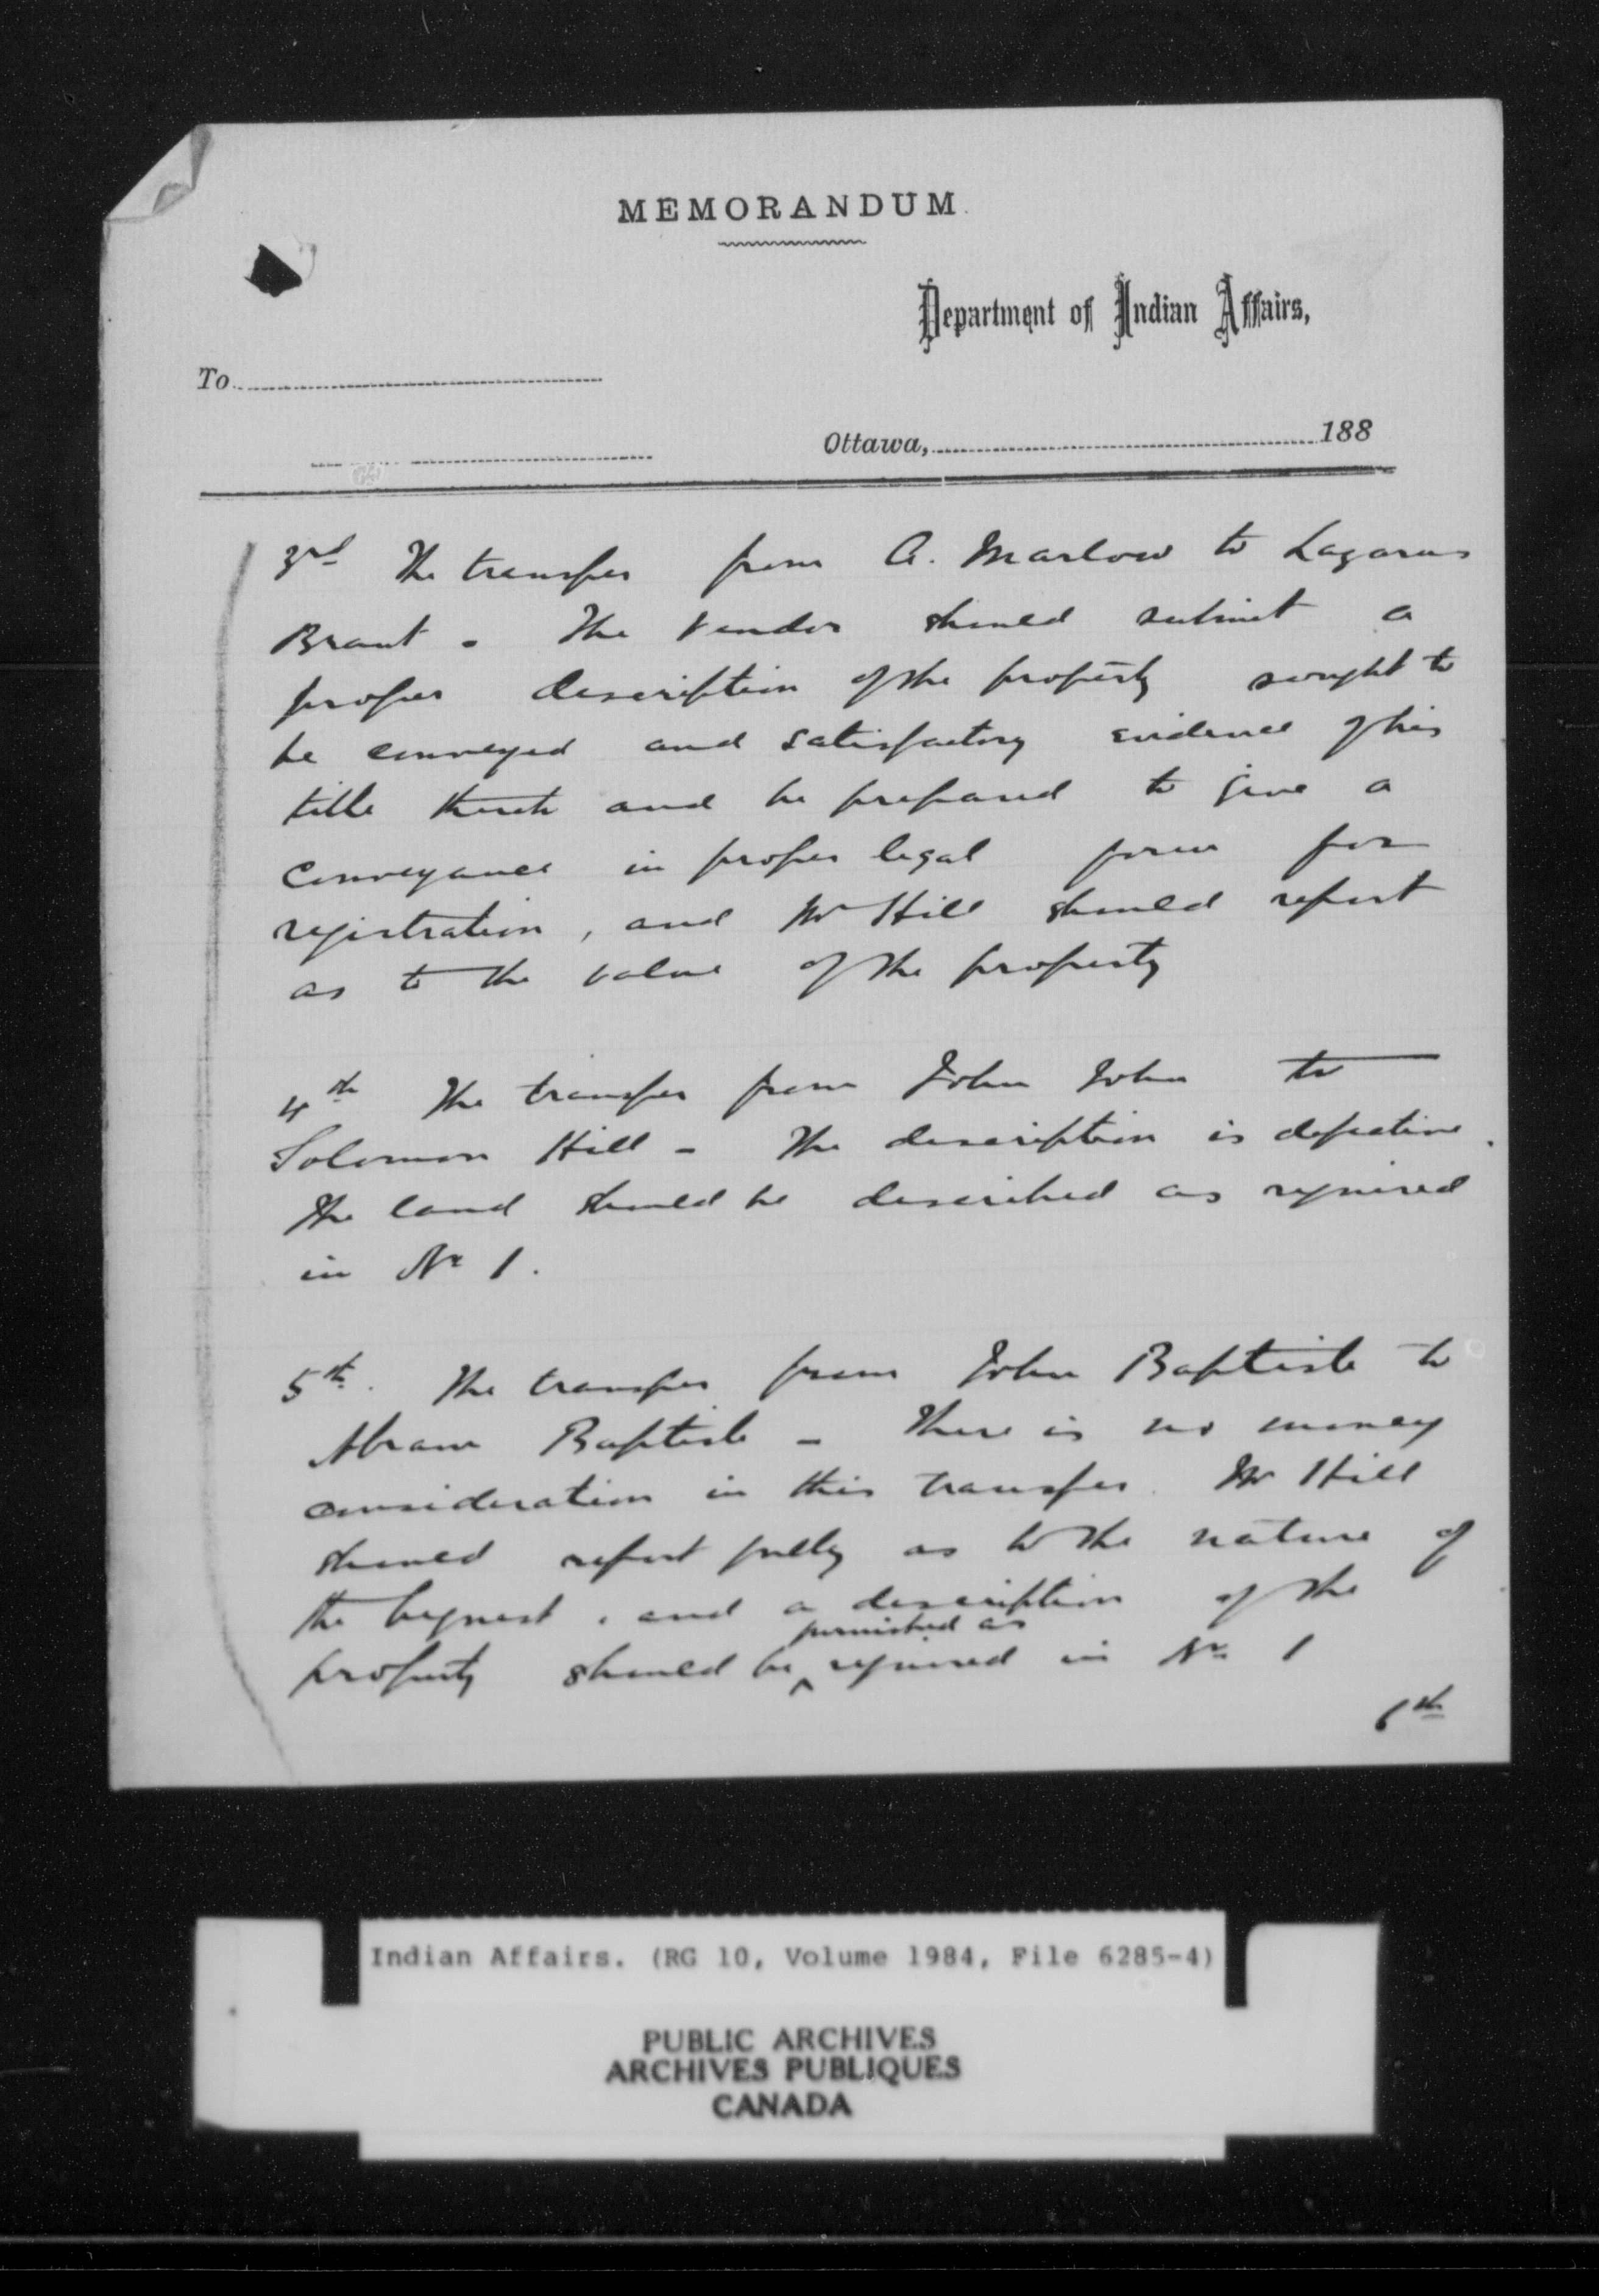 MEMORANDUM.
Department of Indian Affairs,
To
Ottawa, 188
3rd The transfer from A. Marlow to Lazarus
Brant - The Vendor should submit a
proper description of the property sought to
be conveyed and satisfactory evidence of his
title thereto and be prepared to give a
conveyance in proper legal form for
registration, and Mr Hill should report
as to the value of the property
4th The transfer from John John to
Solomon Hill - The description is defective.
The land should be described as required
in No 1.
5th. The transfer from John Baptiste to
Abram Baptiste - There is no money
consideration in this transfer. Mr Hill
should report fully as to the nature of
the bequest, and a description of the
furnished as
property should be ‸ required in No 1
6th
Indian Affairs. (RG 10, Volume 1984, File 6285-4)
PUBLIC ARCHIVES
ARCHIVES PUBLIQUES
CANADA